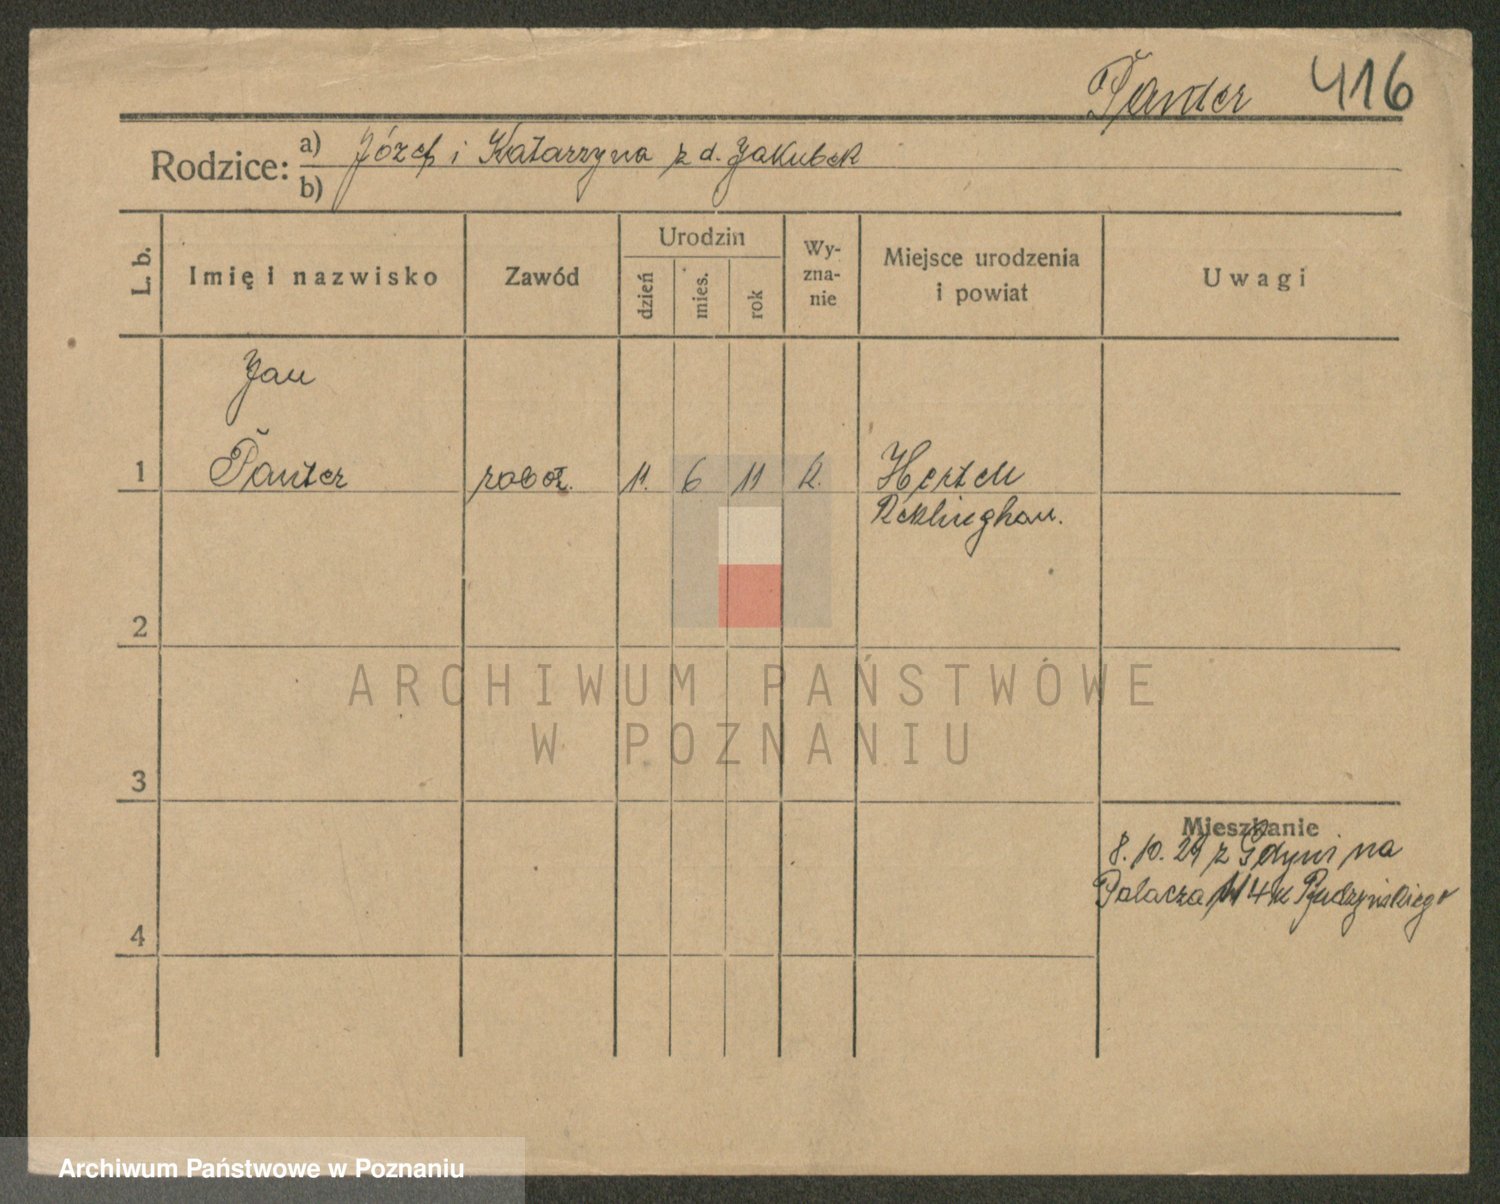 Panter 416
Rodzice: a) Józef i Katarzyna z d. Jakubek
b)
L. b.
Imię i nazwisko
Zawód
Urodzin
dzień
mies.
rok
Wy-
zna-
nie
Miejsce urodzenia
i powiat
Uwagi
Jan
1 Panter robot. 11. 6 11 R. Herten
Reklinghau.
2
ARCHIWUM PAŃSTWOWE
W POZNANIU
3
Mieszkanie
8. 10. 29 z Gdyni na
Palacza 4 u
4
Archiwum Państwowe w Poznaniu